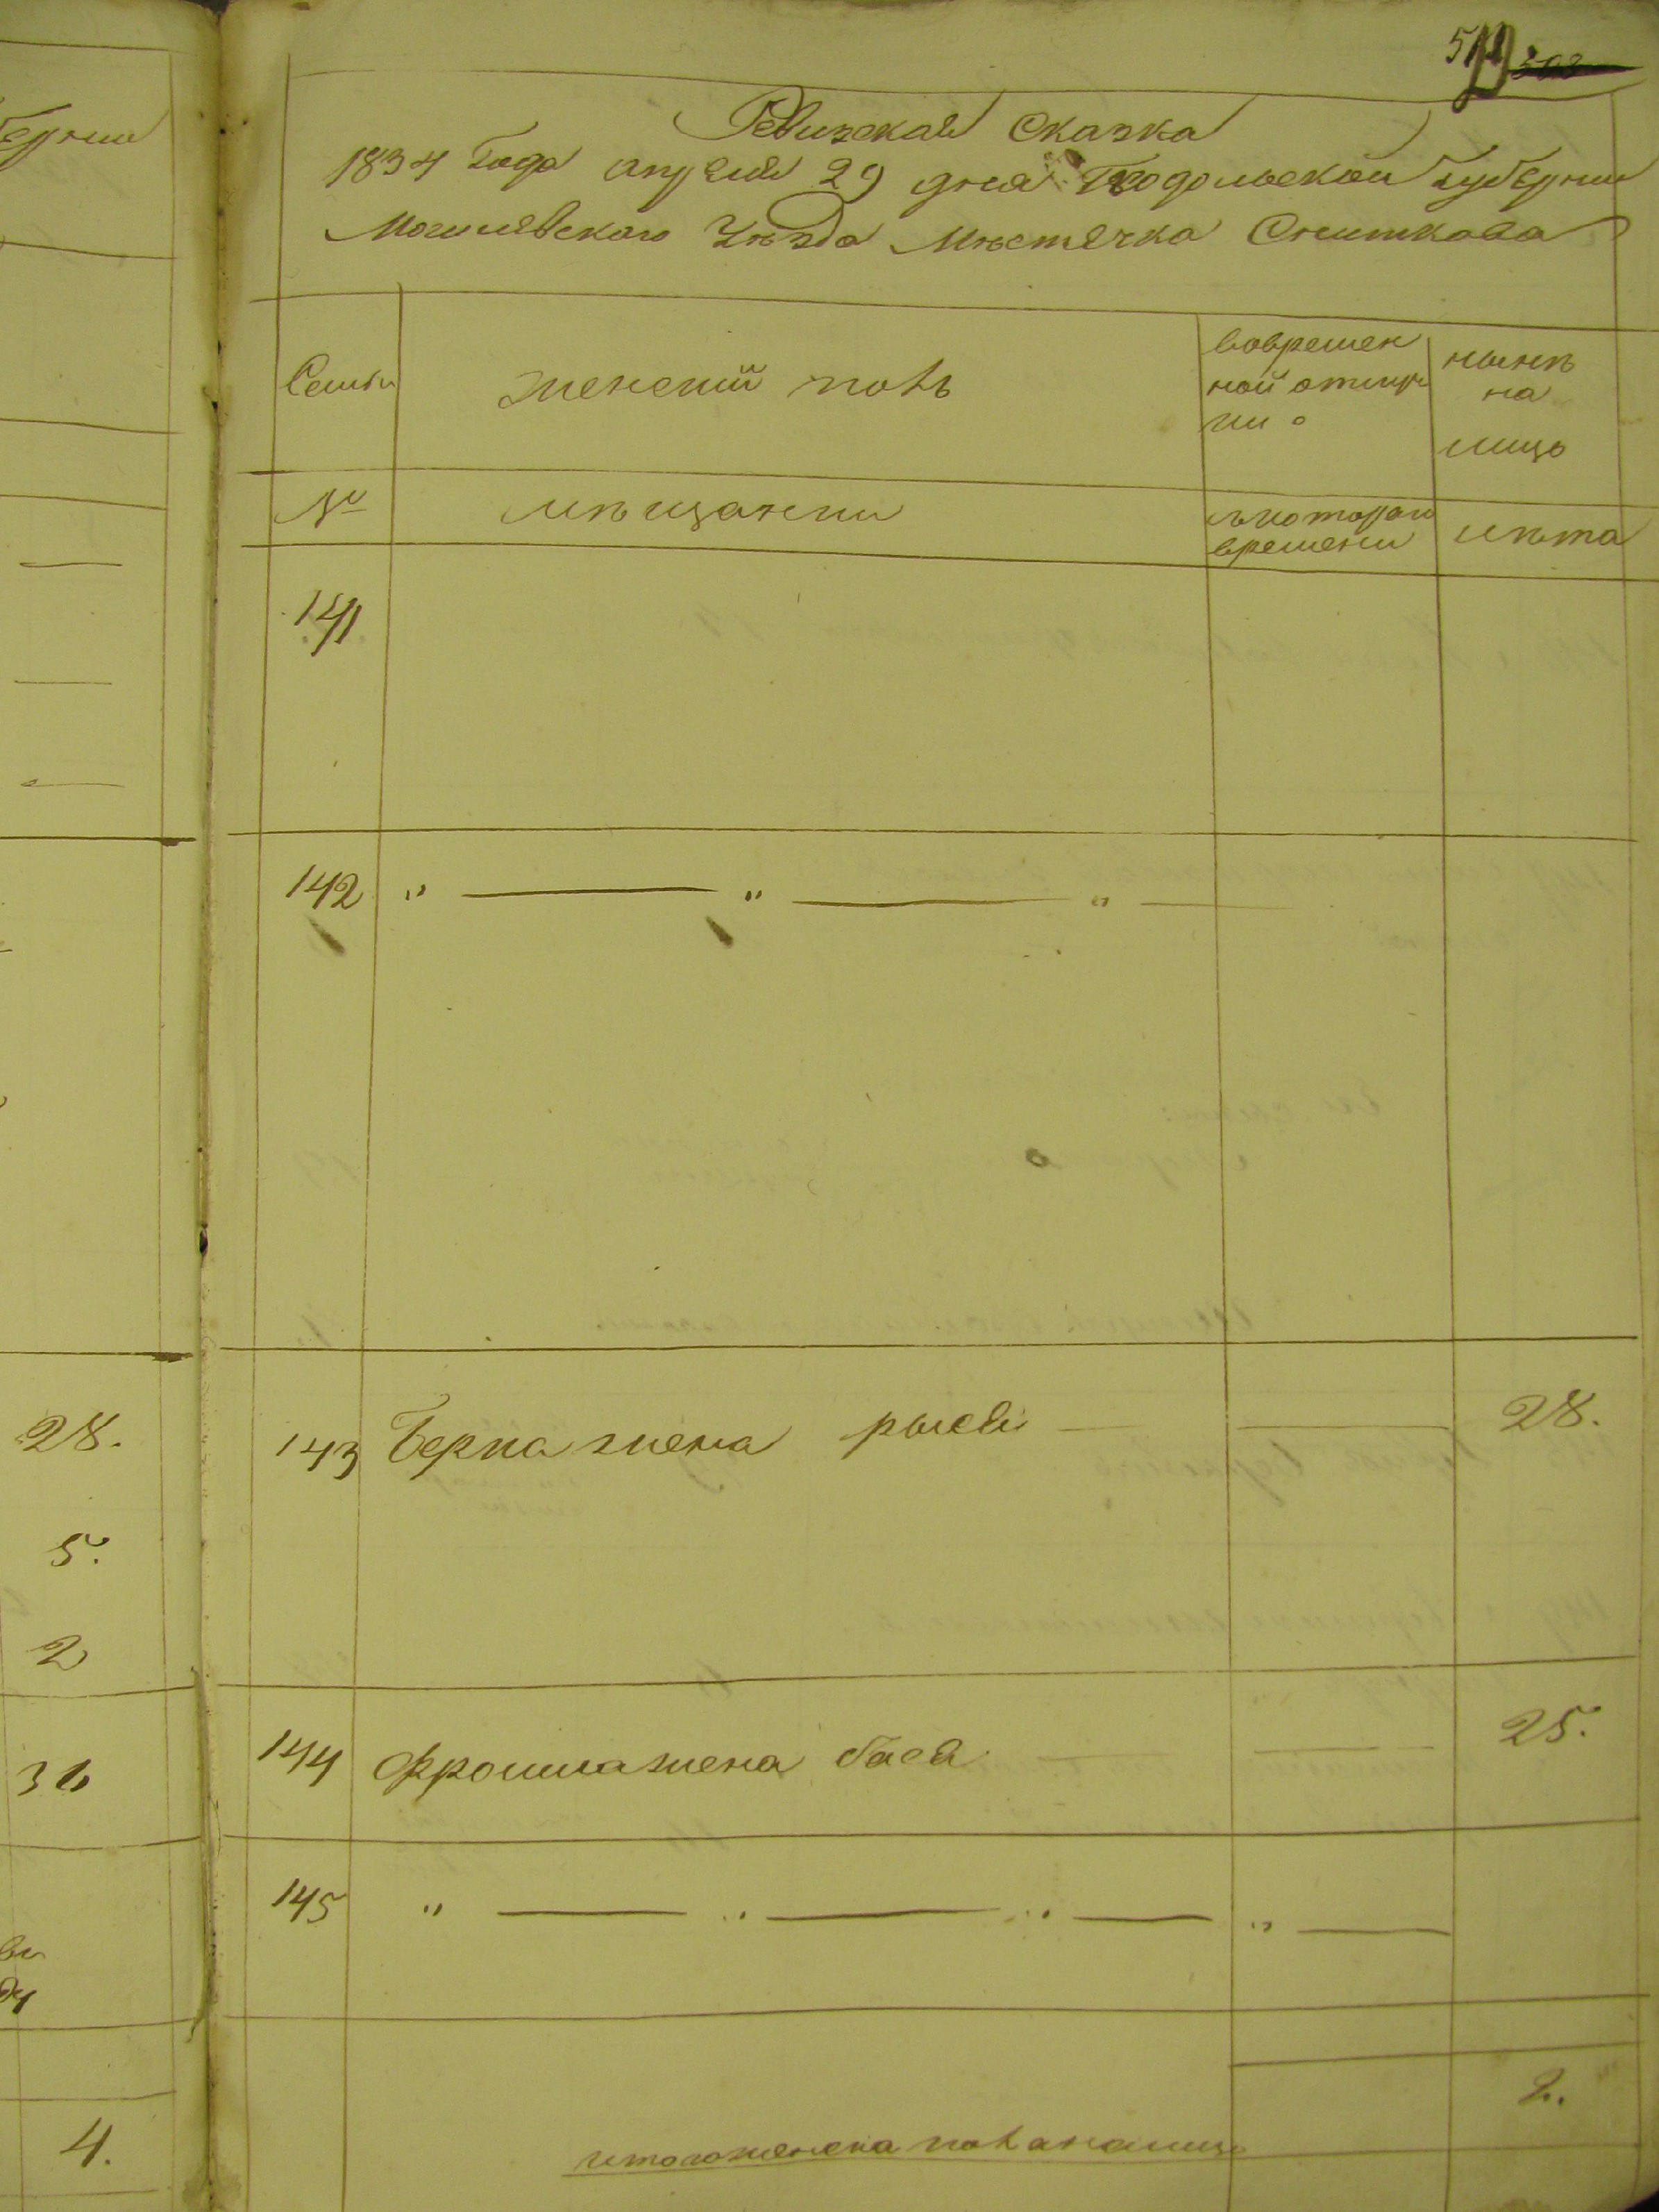 губернии
28.
5.
2
36
4.
511 308
Ревизская Сказка
1834 года апреля 29 дня Подольской губернии
Могилевского Уѣзда Мѣстечка Сниткова
Семьи
женский полъ
вовремен
ной отлуч
ки
нынѣ
на
лицо
№
мѣщанки
скоторого
времени
лѣта
141
142 " — " — " —
143 Берка жена рыся — — 28.
144 Фроима жена бася — — 25.
145 " — " — " — " —
2.
итого женска пола налицо